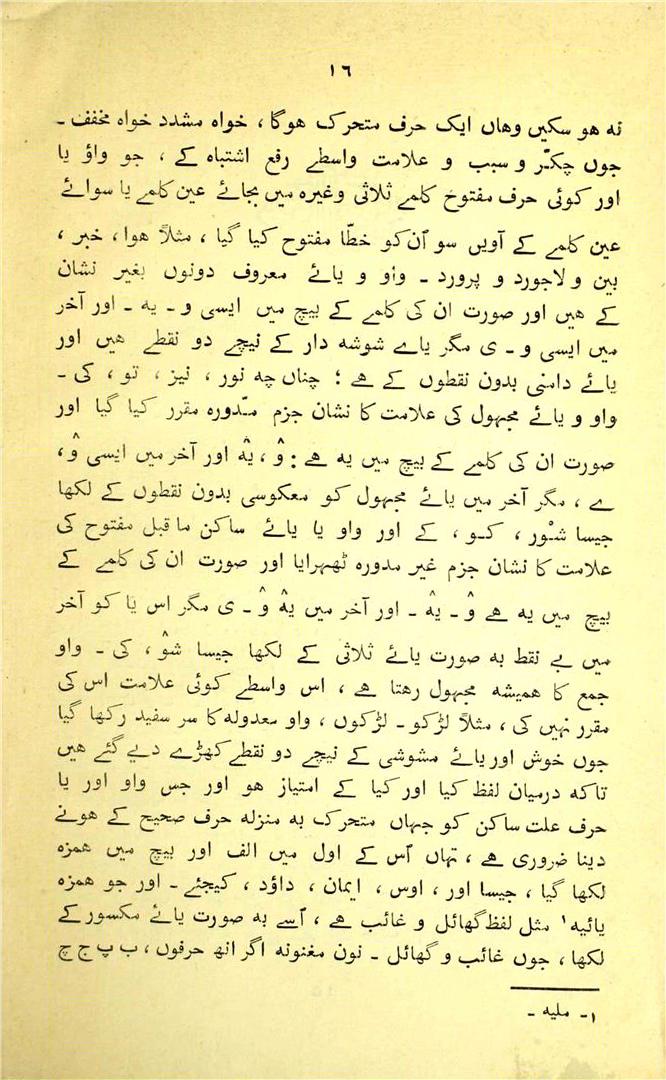 ١٦
نہ ہو سکیں وہاں ایک حرف متحرک ہوگا ، خواہ مشدد خواہ مخفف ۔
جوں چکّر و سبب و علامت واسطے رفع اشتباہ کے ، جو واؤ یا
اور کوئی حرف مفتوح کلمے ثلاثی وغیرہ میں بجائے عین کلمے یا سوائے
عین کلمے کے آویں سو اُن کو خطّا مفتوح کیا گیا ، مثلاً ہوا ، خبر ،
بین و لاجورد و پرورد ۔ واو و یائے معروف دونوں بغیر نشان
کے ہیں اور صورت ان کی کلمے کے بیچ میں ایسی و ۔ یہ ۔ اور آخر
میں ایسی و ۔ ی مگر یاے شوشہ دار کے نیچے دو نقطے ہیں اور
یائے دامنی بدون نقطوں کے ہے ؛ چناں چہ نور ، نیز ، تو ، کی ۔
واو و یائے مجہول کی علامت کا نشان جزم مدّورہ مقرر کیا گیا اور
صورت ان کی کلمے کے بیچ میں یہ ہے : وٛ ، یہٛ اور آخر میں ایسی وٛ ،
ے ، مگر آخر میں یائے مجہول کو معکوسی بدون نقطوں کے لکھا
جیسا شوْر ، کو ، کے اور واو یا یائے ساکن ماقبل مفتوح کی
علامت کا نشان جزم غیر مدورہ ٹھہرایا اور صورت ان کی کلمے کے
بیچ میں یہ ہے وٛ ۔ یہٛ ۔ اور آخر میں یہٛ وٛ ۔ ی مگر اس یا کو آخر
میں بے نقط بہ صورت یائے ثلاثی کے لکھا جیسا شوٛ ، کی ۔ واو
جمع کا ہمیشہ مجہول رہتا ہے ، اس واسطے کوئی علامت اس کی
مقرر نہیں کی ، مثلاً لڑکو ۔ لڑکوں ، واو معدولہ کا سر سفید رکھا گیا
جوں خوش اور یائے مشوشی کے نیچے دو نقطے کھڑے دیے گئے ہیں
تاکہ درمیان لفظ کیا اور کیا کے امتیاز ہو اور جس واو اور یا
حرف علت ساکن کو جہاں متحرک بہ منزلہ حرف صحیح کے ہونے
دینا ضروری ہے ، تہاں اُس کے اول میں الف اور بیچ میں ہمزہ
لکھا گیا ، جیسا اور ، اوس ، ایمان ، داؤد ، کیجئے ۔ اور جو ہمزہ
یائیہ ١ مثل لفظ گھائل و غائب ہے ، اُسے بہ صورت یائے مکسور کے
لکھا ، جوں غائب و گھائل ۔ نون مغنونہ اگر انھ حرفوں ، ب پ ج چ
١ ۔ ملیہ ۔